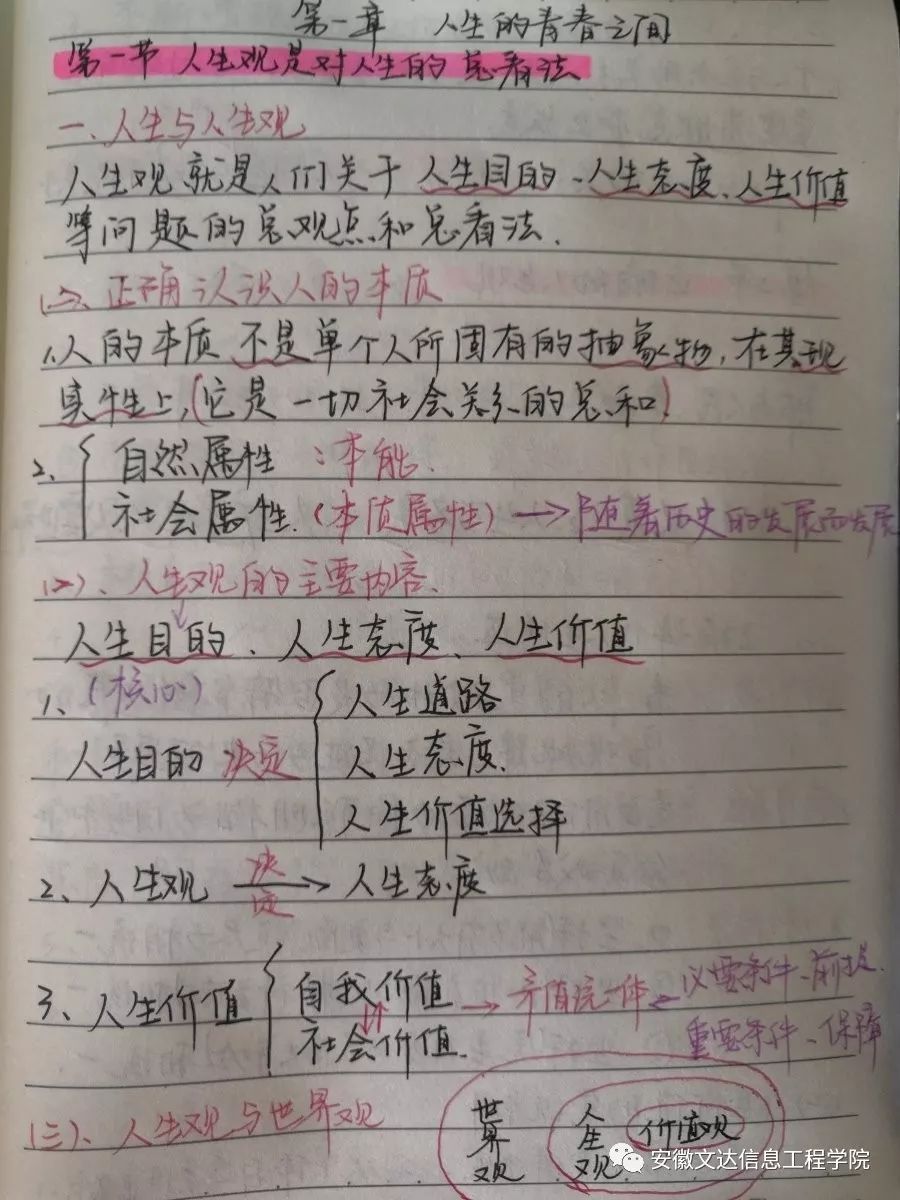 第一章 人生的青春之问
第一节 人生观是对人生的总看法
一、人生与人生观
人生观就是人们关于人生目的、人生态度、人生价值
等问题的总观点和总看法.
(一)、正确认识人的本质
1.人的本质不是单个人所固有的抽象物,在其现
实性上,(它是一切社会关系的总和)
2、{自然属性:本能.
社会属性.(本质属性)→随着历史的发展而发展
(二)、人生观的主要内容.
人生目的、人生态度、人生价值
1、(核心)
人生目的 决定 {人生道路
人生态度.
人生价值选择
2、人生观 决定→ 人生态度
3、人生价值{自我价值
社会价值.
→矛值统一体←必要条件、前提.
重要条件、保障
(三)、人生观与世界观
世界观 人生观 价值观
安徽文达信息工程学院